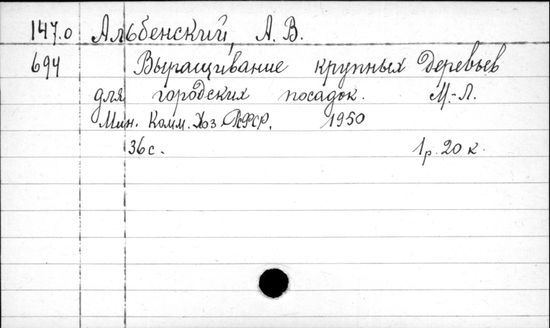 147.0 Альбенский, А. В.
694 Выращивание крупных деревьев
для городских посадок. М.-Л.
Мин. Комм. Хоз. РСФСР, 1950
36 с. 1 р. 20 к.